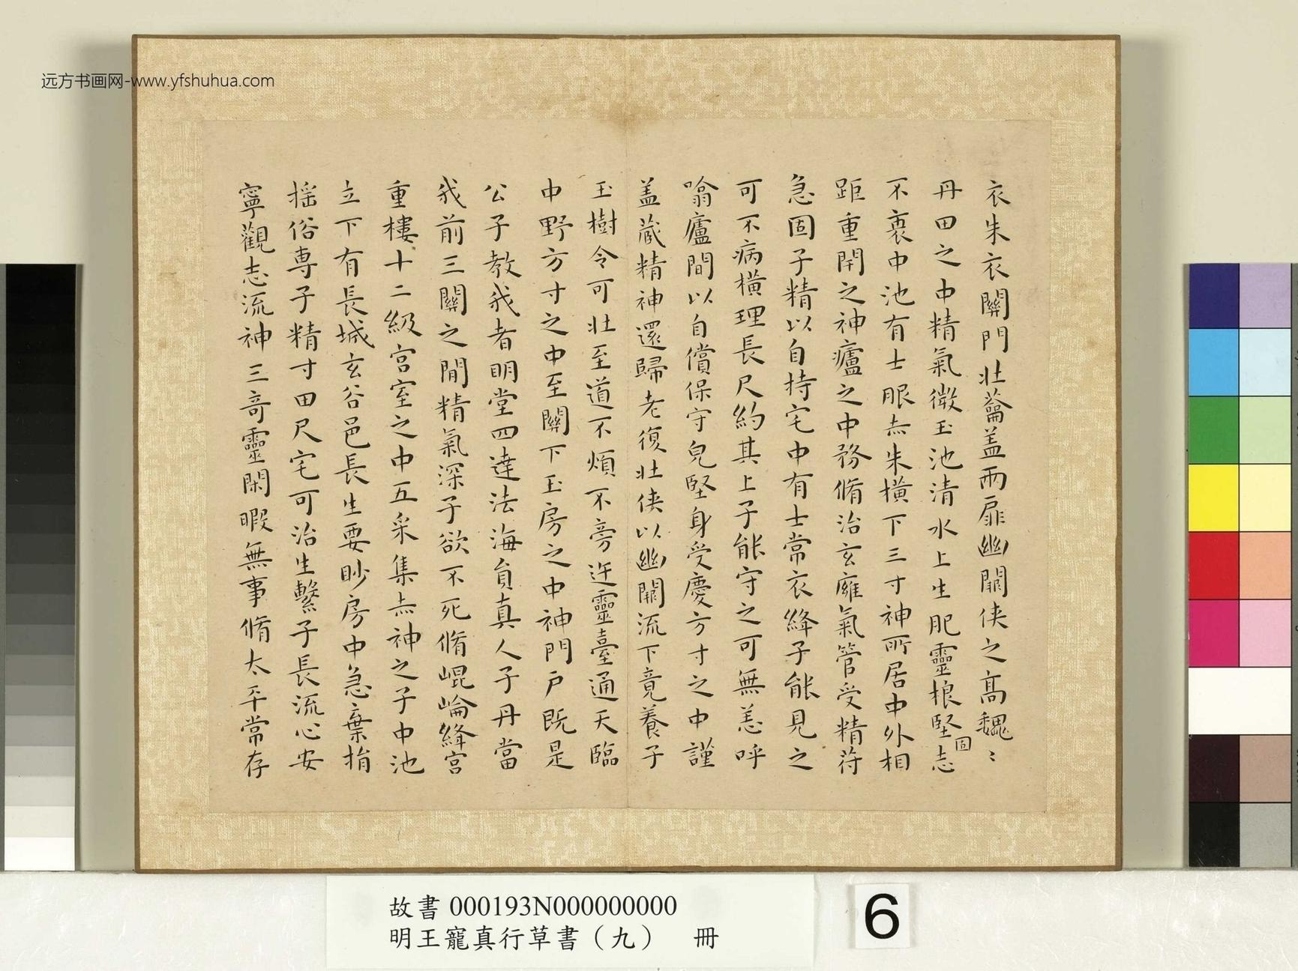 远方书画网-www.yfshuhua.com
衣朱衣關門壮蘥盖兩扉幽關侠之高魏〻
丹田之中精氣微玉池清水上生肥靈根堅固志
不衰中池有士服赤朱橫下三寸神所居中外相
距重閇之神廬之中務脩治玄廱氣管受精苻
急固子精以自持宅中有士常衣絳子能見之
可不病橫理長尺約其上子能守之可無恙呼
噏廬間以自償保守皃堅身受慶方寸之中謹
盖藏精神還歸老復壮侠以幽關流下竟養子
玉樹令可壮至道不煩不旁迕靈臺通天臨
中野方寸之中至關下玉房之中神門戶既是
公子教我者明堂四達法海員真人子丹當
我前三關之閒精氣深子欲不死脩崐崘絳宮
重樓十二級宮室之中五采集赤神之子中池
立下有長城玄谷邑長生要眇房中急棄捐
搖俗専子精寸田尺宅可治生繫子長流心安
寧觀志流神三奇靈閑暇無事脩太平常存
故書 000193N000000000
明王寵真行草書（九） 冊
6